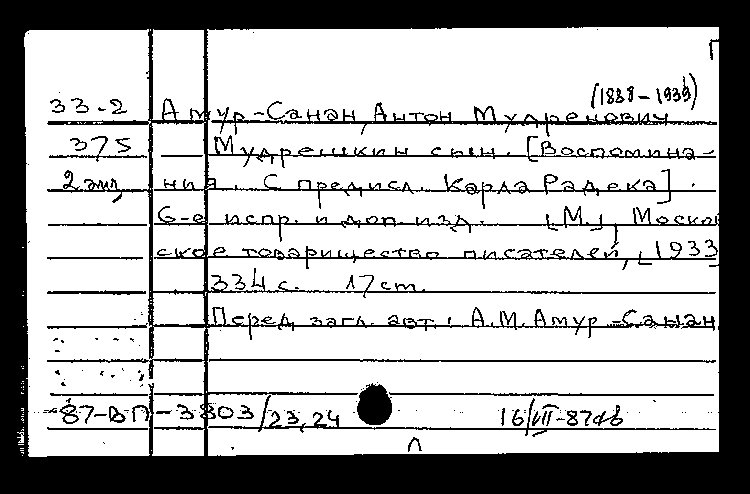 (1888-1939)
33-2 Амур-Санан, Антон Мудренович
375 Мудрешкин сын. [Воспомина-
2 экз, ния. С предисл. Карла Радека].
6-е испр. и доп. изд. [М.], Москов
ское товарищество писателей, [1933
334 с. 17 cm.
Перед загл. авт.: А.М. Амур-Санан
87-ВП-3803/23,24 16/VII-87